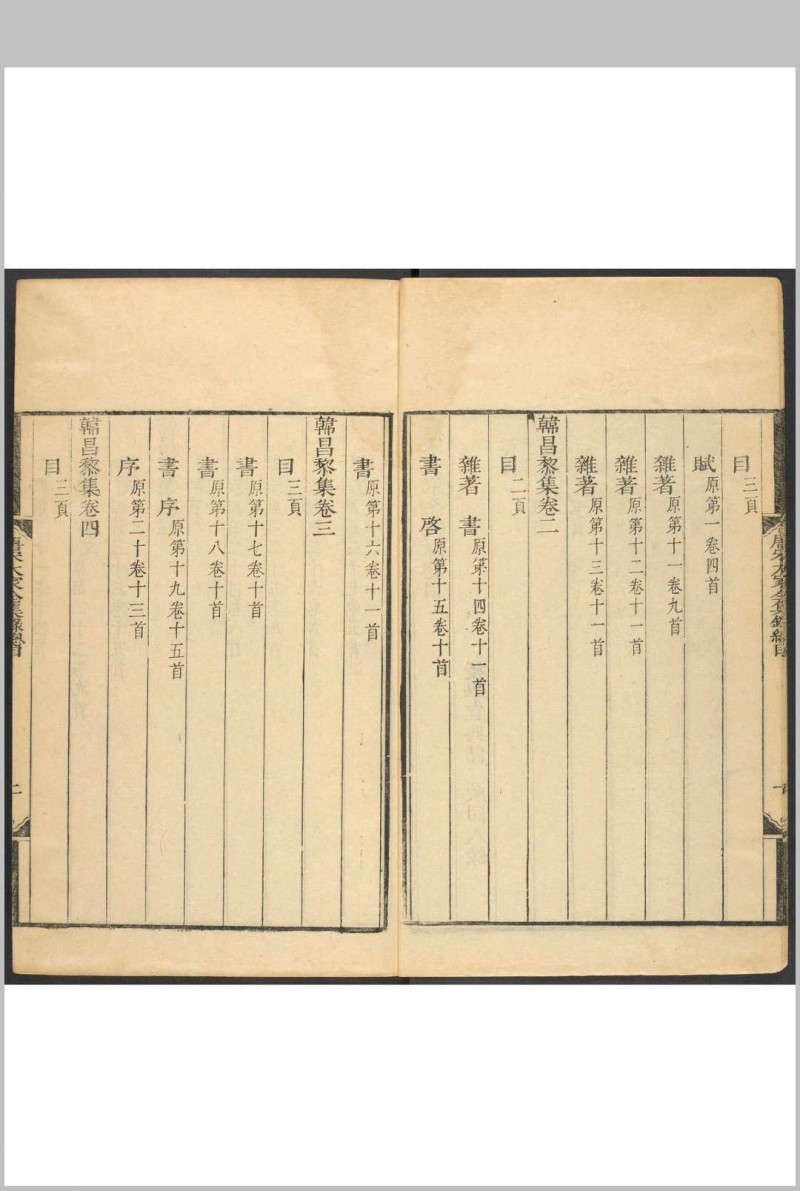 目三頁
賦原第一卷四首
雜著原第十一卷九首
雜著原第十二卷十一首
雜著原第十三卷十一首
韓昌黎集卷二
目二頁
雜著 書原第十四卷十一首
書 啓原第十五卷十首
書原第十六卷十一首
韓昌黎集卷三
目三頁
書原第十七卷十首
書原第十八卷十首
書 序原第十九卷十五首
序原第二十卷十三首
韓昌黎集卷四
目三頁